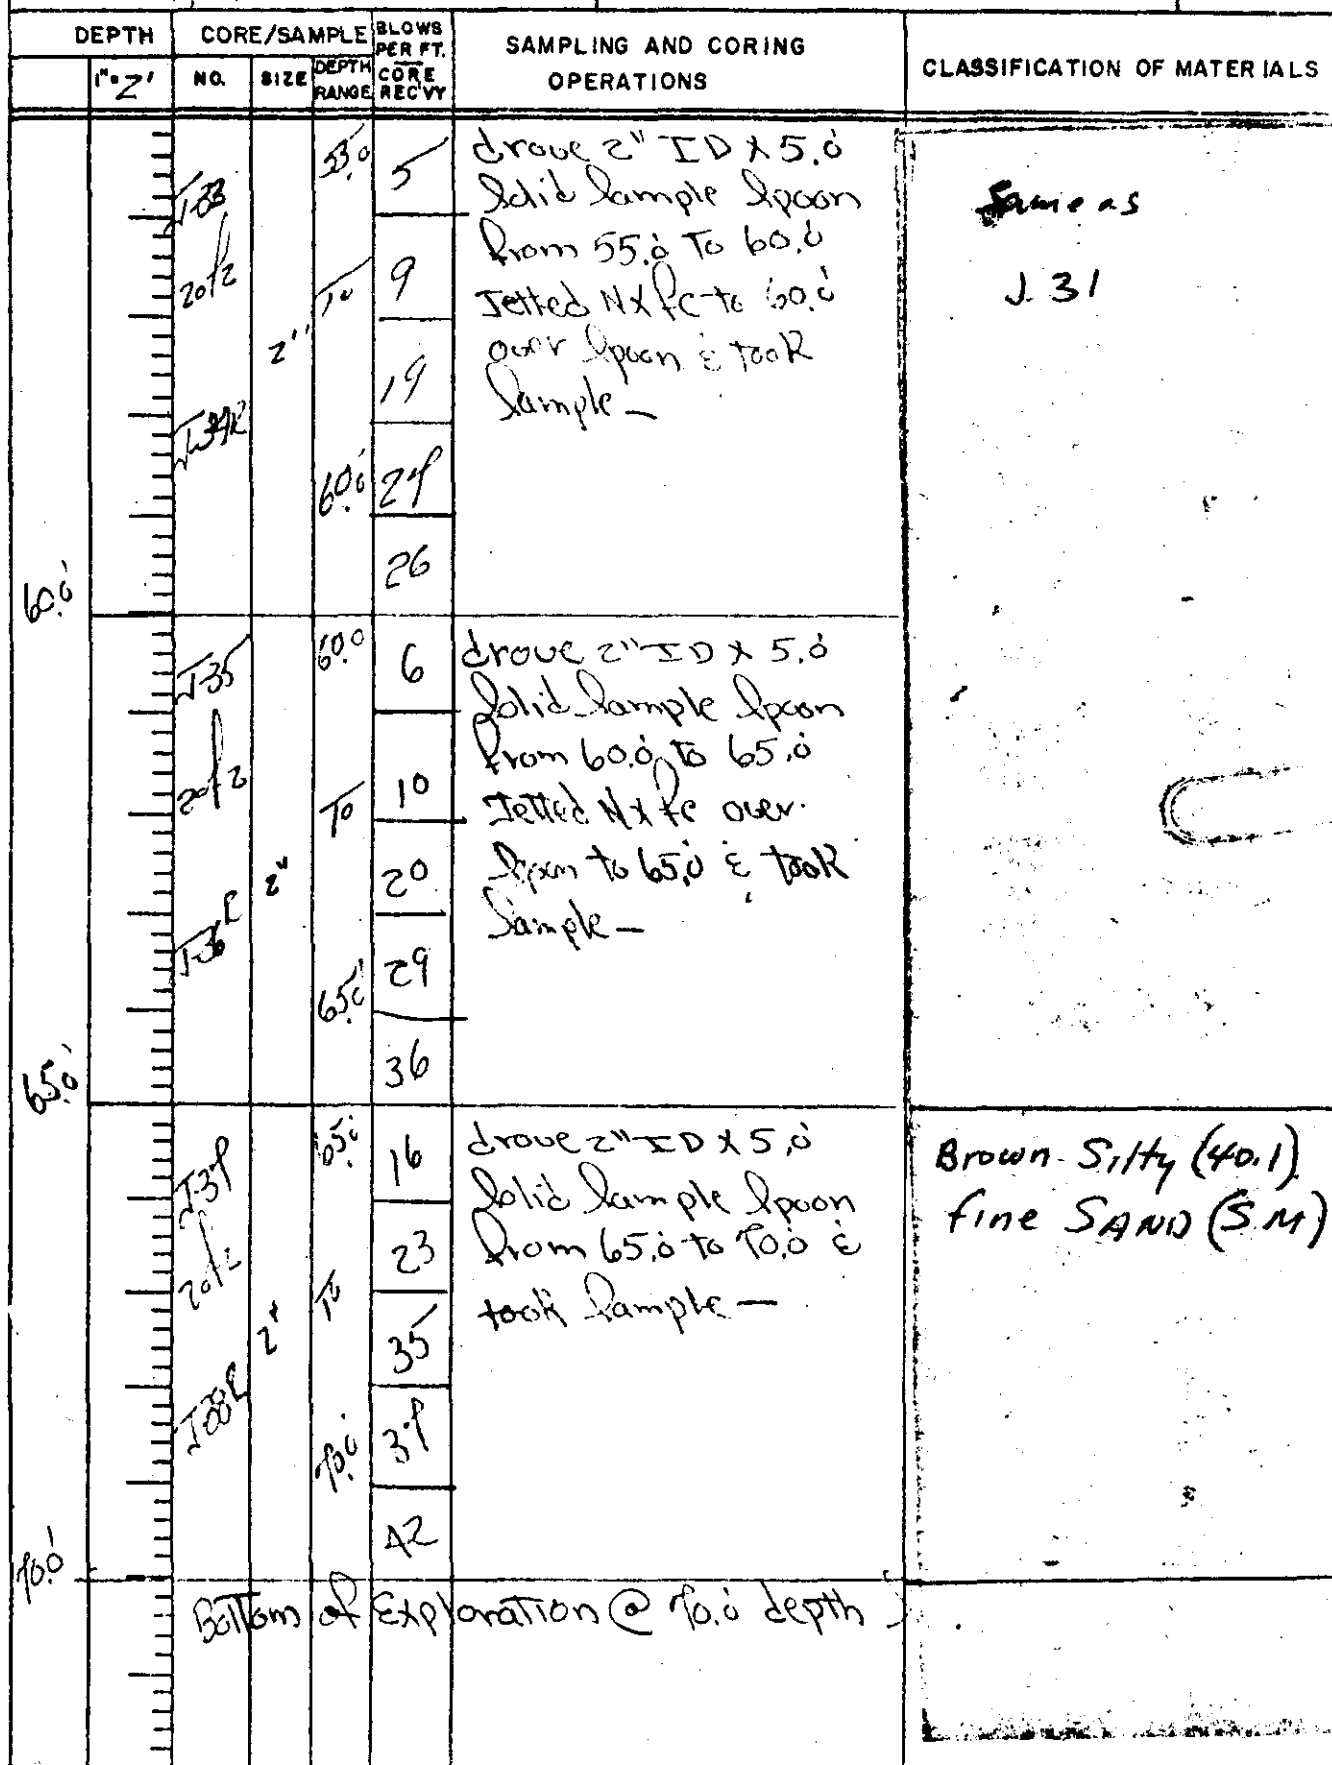 DEPTH
CORE/SAMPLE
BLOWS PER FT.
CORE REC'VY
SAMPLING AND CORING
OPERATIONS
CLASSIFICATION OF MATERIALS
1"=2'
NO.
SIZE
DEPTH RANGE
J33
2 of 2
2"
55.0
To
60.0'
5
9
19
24
26
drove 2" ID x 5.0'
Solid Sample Spoon
from 55.0' To 60.0'
Jetted NX fc to 60.0'
over Spoon & took
Sample —
Same as
J.31
60.0'
J35
2 of 2
J36R
2"
60.0
To
65.0'
6
10
20
29
36
drove 2" ID x 5.0'
Solid Sample Spoon
from 60.0' to 65.0'
Jetted NX fc over
Spoon to 65.0' & took
Sample —
65.0'
J37
2 of 2
J38R
2"
65.0'
To
70.0'
16
23
35
37
42
drove 2" ID x 5.0'
Solid Sample Spoon
from 65.0' to 70.0' &
took Sample —
Brown Silty (40.1)
fine SAND (SM)
70.0'
Bottom of Exploration @ 70.0' depth